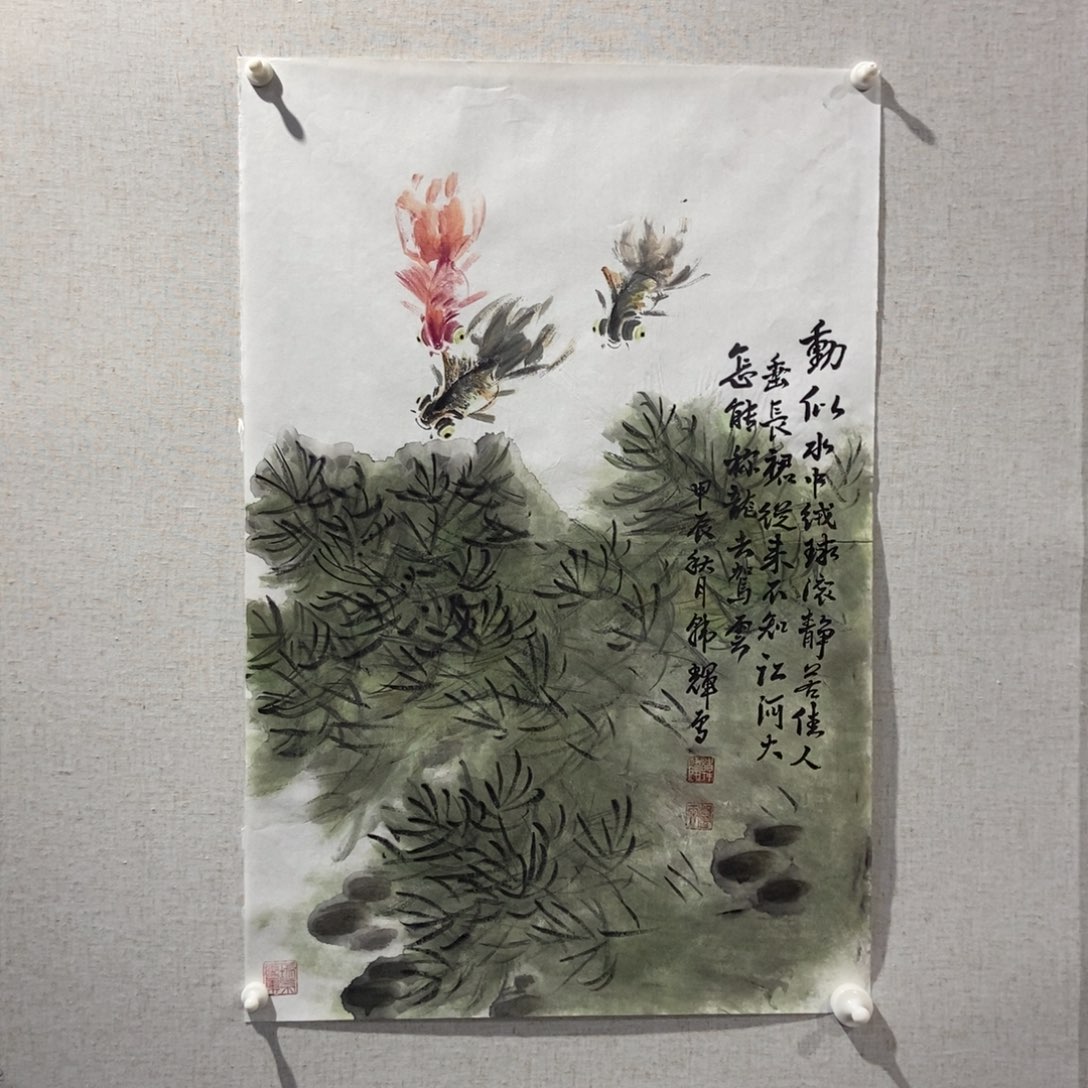 動似水中绒球滚静若佳人
垂長裙從来不知江河大
怎能称龍去駕雲
甲辰秋月韩輝写